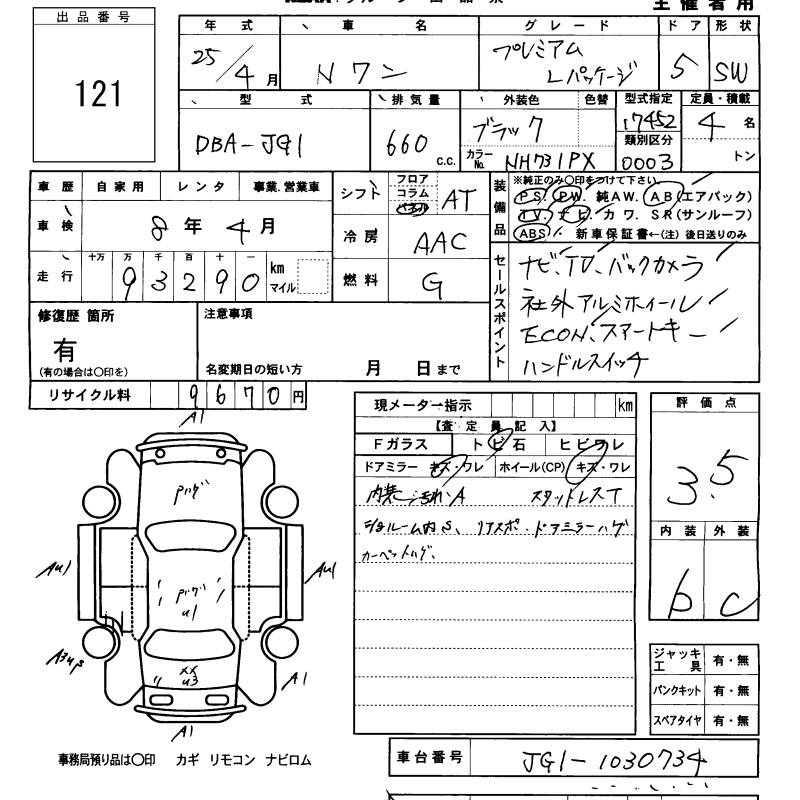 主催者用
出品番号
121
年式 車名 グレード ドア 形状
25/4月 Nワン プレミアム Lパッケージ 5 SW
型式 排気量 外装色 色替 型式指定 定員・積載
DBA-JG1 660 c.c. ブラック 17452 4名
カラーNo. NH731PX 類別区分 0003 トン
車歴 自家用 レンタ 事業.営業車
車検 8年4月
走行 十万 万 千 百 十 一
93290 km マイル
シフト フロア コラム パネル AT
冷房 AAC
燃料 G
装備品
※純正のみ○印をつけて下さい。
PS. PW. 純AW. AB(エアバック)
TV. ナビ. カワ. SR(サンルーフ)
ABS. 新車保証書←(注) 後日送りのみ
セールスポイント
ナビ、TV、バックカメラ
社外アルミホイール
ECON、スマートキー
ハンドルスイッチ
修復歴 箇所
有
(有の場合は○印を)
注意事項
名変期日の短い方 月 日まで
リサイクル料 9670円
現メーター指示 km
【査定員記入】
Fガラス トビ石 ヒビワレ
ドアミラー キズ・ワレ ホイール(CP) キズ・ワレ
内装汚れA スタッドレスT
ショルーム内S、リアスポ・ドアミラーハゲ
カーペットハゲ、
評価点
3.5
内装 外装
b c
ジャッキ 工具 有・無
パンクキット 有・無
スペアタイヤ 有・無
A1
Pハゲ
AU1
AU1
Pハゲ
U1
A3US
XX
U3
A1
A1
事務局預り品は○印 カギ リモコン ナビロム
車台番号 JG1-1030734